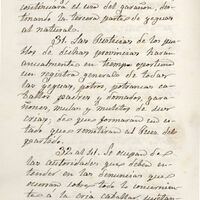 continuará el uso del garañon, des-
tinando la tercera parte de yeguas
al natural.
31. Las Justicias de los pue-
blos de dichas provincias harán
anualmente en tiempo oportuno
un registro general de todas
las yeguas, potros, potrancas ca-
ballos padres y domados, garaño-
nes, mulas y muletos de sus
crias, de que formarán un es-
tado que remitirán al Gefe del
partido.
32. al 41. Se ocupan de
las autoridades que deben en-
tender en las denuncias que
ocurran sobre todo lo concernien-
te a la cria caballar